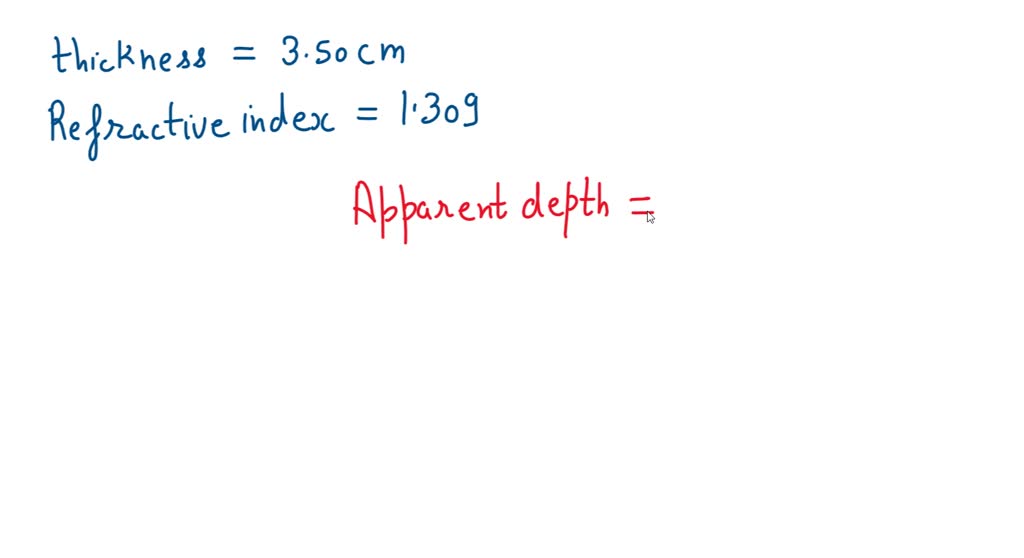 thickness = 3.50 cm
Refractive index = 1.309
Apparent depth =